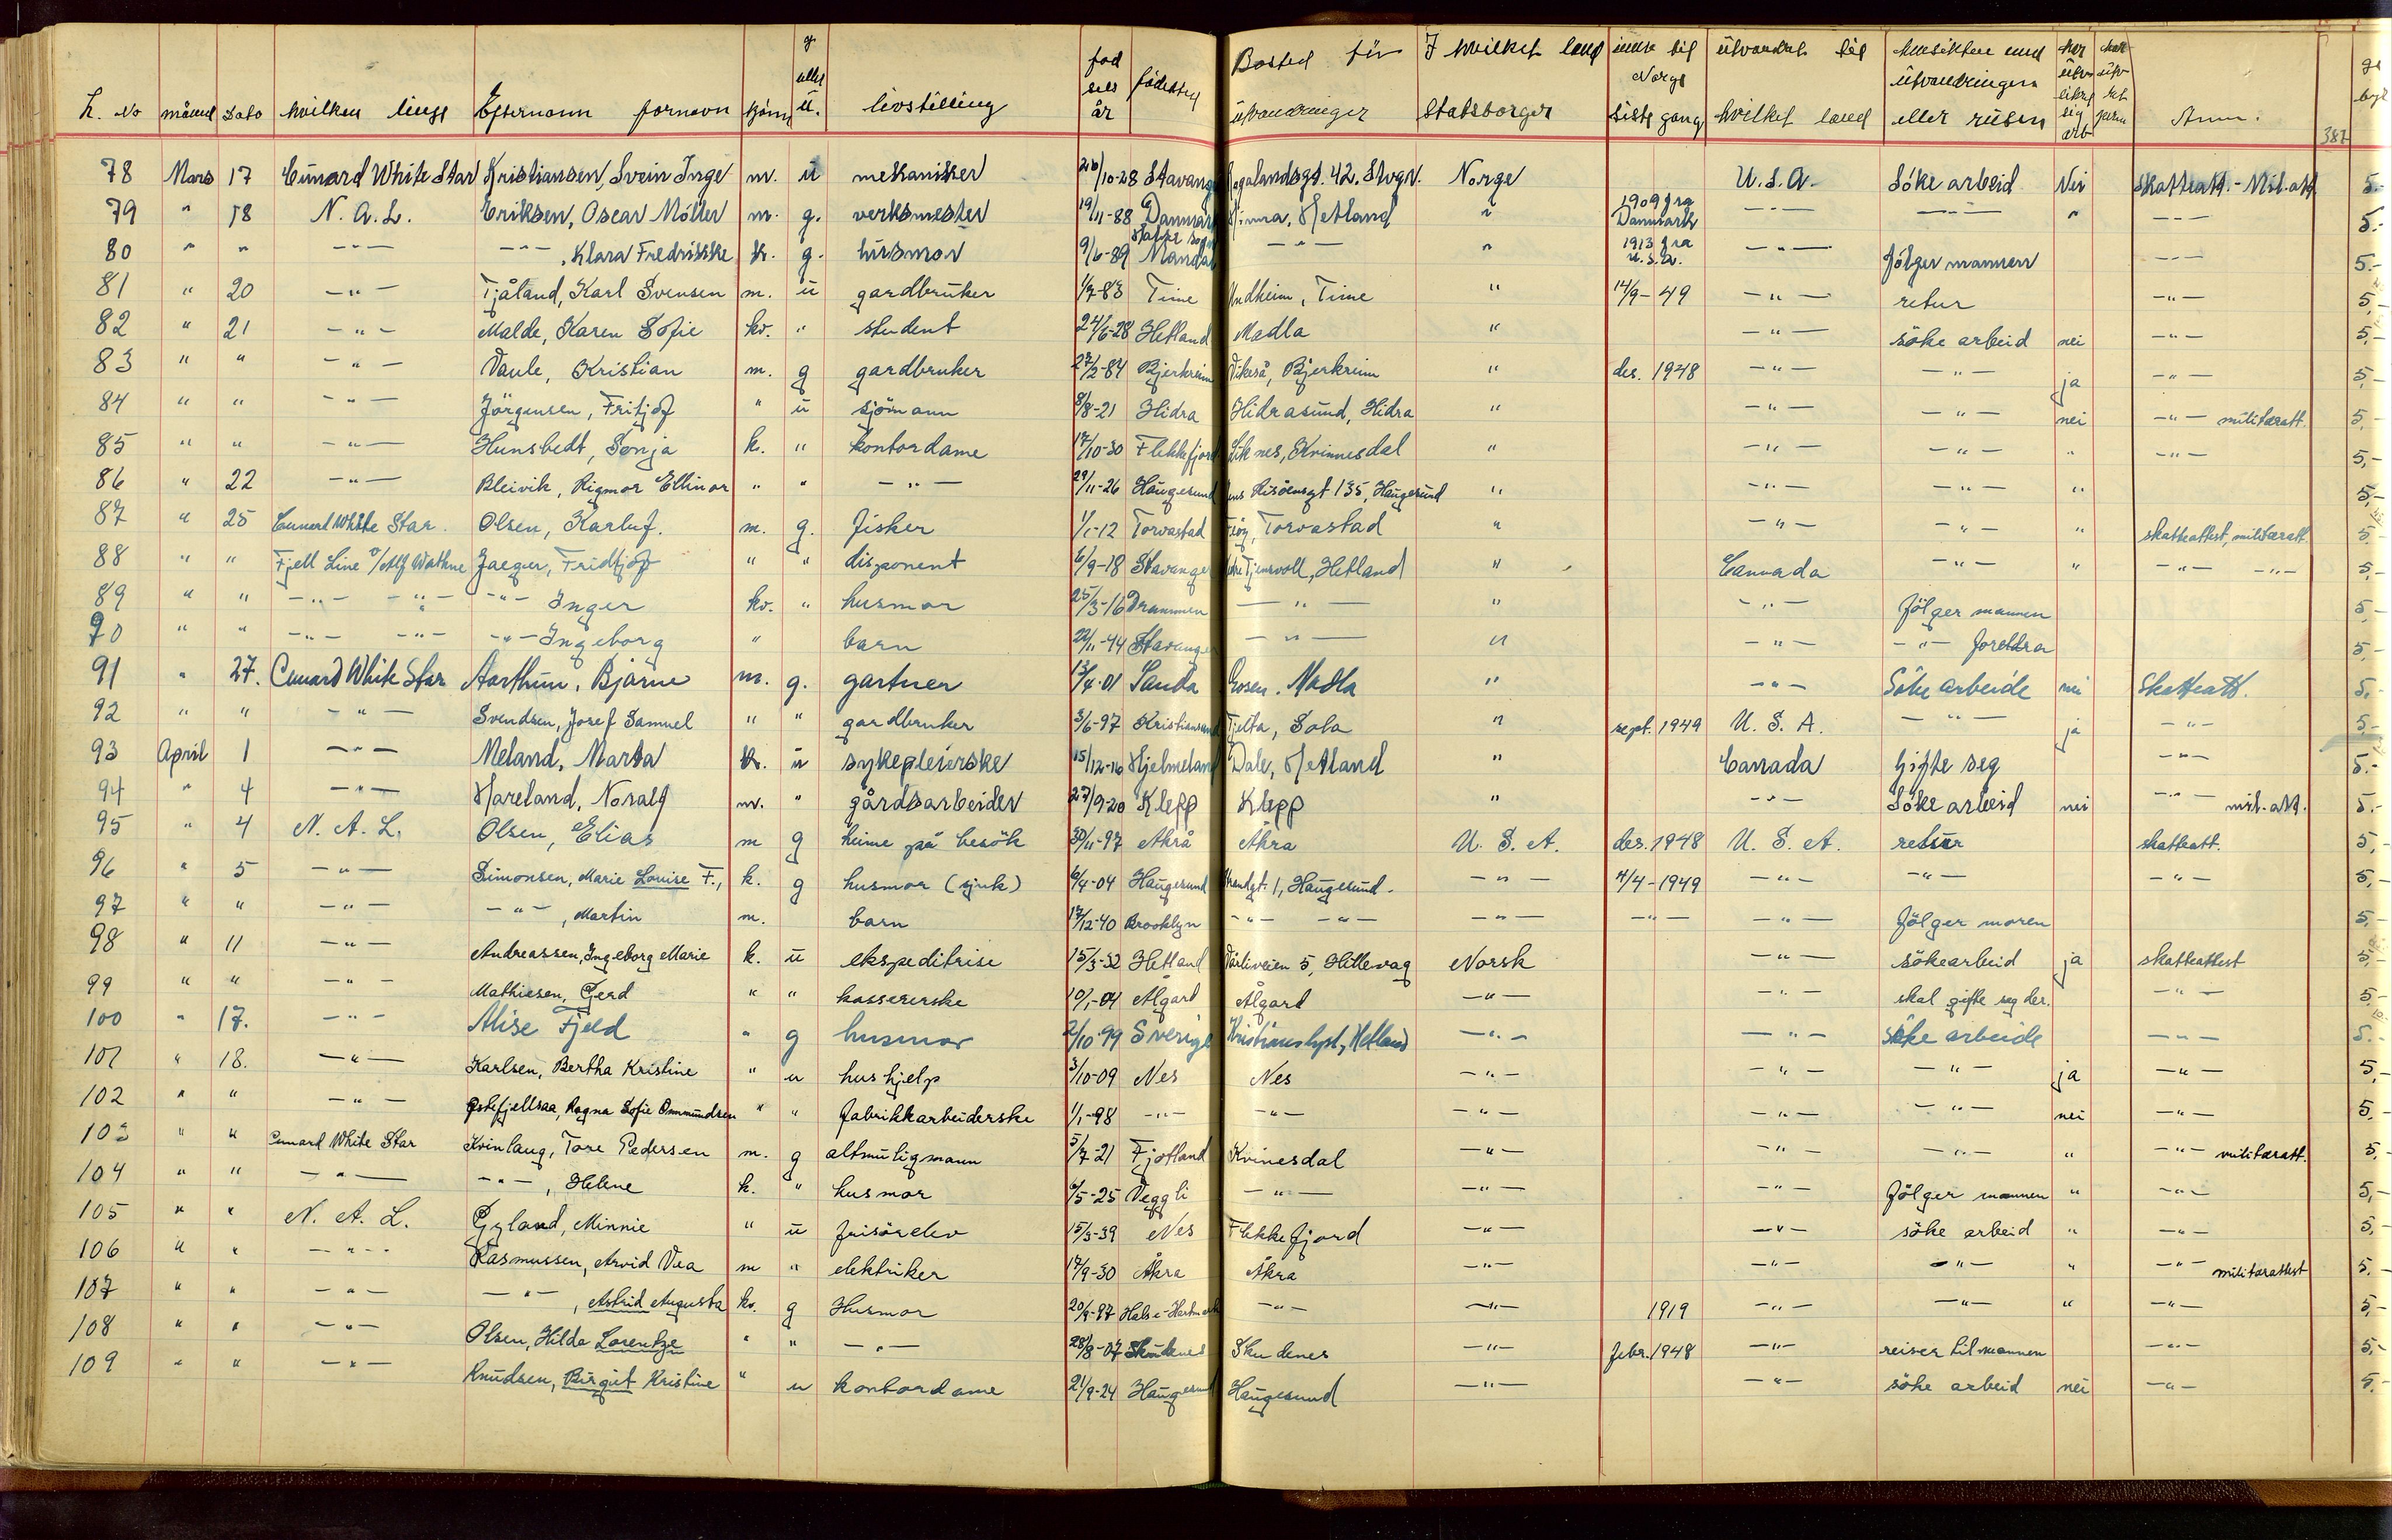 g. eller u.
L. No måned Dato hvilken linje Efternavn fornavn kjønn livstilling fødselsår fødested Bosted før utvandringen I hvilket land Statsborger Norge siste gang utvandret til hvilket land Hensikten med utvandringen eller reisen Anm.
387
78 Mars 17 Cunard White Star Kristiansen, Svein Inge m. u mekaniker 26/10-28 Stavanger Rogalandsgt. 42. Stvgr. Norge U.S.A. Söke arbeid Nei Skatteatt. - Mil. att 5.-
79 " 18 N. A. L. Eriksen, Oscar Möller m. g. verksmester 19/11-88 Danmark Hinna, Hetland " 1909 fra Danmark -"- -"- " -"- 5.-
80 " " -"- -"- , Klara Fredrikke k. g. husmor 9/6-89 Mandal -"- " 1913 fra U.S.A. -"- fölger mannen -"- 5.-
81 " 20 -"- Tjåland, Karl Svensen m. u gardbruker 1/7-83 Time Undheim, Time " 14/9-49 -"- retur -"- 5,-
82 " 21 -"- Malde, Karen Sofie kv. " student 24/6-28 Hetland Madla " -"- söke arbeid nei -"- 5,-
83 " " -"- Vaule, Kristian m. g gardbruker 27/2-84 Bjerkreim Vikeså, Bjerkreim " des. 1948 -"- -"- ja -"- 5,-
84 " " -"- Jörgensen, Fritjof " u sjömann 8/8-21 Hidra Hidrasund, Hidra " -"- -"- nei -"- militæratt. 5,-
85 " " -"- Hunsbedt, Sonja k. " kontordame 17/10-30 Flekkefjord Liknes, Kvinnesdal " -"- -"- " -"- 5,-
86 " 22 -"- Bleivik, Rigmor Ellinor " " -"- 29/11-26 Haugesund Jens Risöensgt 135, Haugesund " -"- -"- " 5,-
87 " 25 Cunard White Star. Olsen, Karluf. m. g. fisker 1/1-12 Torvastad Feöy, Torvastad " -"- -"- " skatteattest, militæratt. 5.
88 " " Fjell Line v/ Alf Wathne Jaeger, Fridtjof " " disponent 6/9-18 Stavanger Tjensvoll, Hetland " Cannada -"- " -"- -"- 5,-
89 " " -"- -"- -"- Inger kv. " husmor 25/3-16 Drammen -"- " -"- fölger mannen 5,-
90 " " -"- -"- -"- Ingeborg " barn 22/11-44 Stavanger -"- " -"- -"- foreldra 5,-
91 " 27. Cunard White Star Aarthun, Bjarne m. g. gartner 13/4-01 Sauda Gosen. Madla " -"- Söke arbeide nei Skatteatt. 5.
92 " " -"- Svendsen, Josef Samuel " " gardbruker 3/6-97 Kristiansand Tjelta, Sola " sept. 1949 U. S. A. -"- ja -"- 5,-
93 April 1 -"- Meland, Marta k. u sykepleierske 15/12-16 Hjelmeland Dale, Hetland " Canada Gifte seg -"- 5.-
94 " 4 -"- Hareland, Noralf m. " gårdsarbeider 27/9-20 Klepp Klepp " -"- Söke arbeid nei -"- mil. att. 5.-
95 " 4 N. A. L. Olsen, Elias m g heime på besök 30/11-97 Akrå Akra U. S. A. des. 1948 U. S. A. retur skatteatt. 5,-
96 " 5 -"- Simonsen, Marie Louise F., k. g husmor (sjuk) 6/4-04 Haugesund Strandgt. 1, Haugesund. -"- 4/4-1949 -"- -"- -"- 5,-
97 " " -"- -"- , Martin m. barn 17/12-40 Brooklyn -"- -"- -"- -"- -"- fölger moren 5,-
98 " 11 -"- Andreassen, Ingeborg Marie k. u ekspeditrise 15/3-32 Hetland Vårliveien 5, Hillevag Norsk -"- sökearbeid ja skatteattest 5,-
99 " " -"- Mathiesen, Gerd " " kassererske 10/1-04 Algard Ålgard -"- -"- skal gifte seg der. -"- 5,-
100 " 17. -"- Alise Fjeld " g husmor 2/10-99 Sverige Kristianslyst, Hetland -"- -"- söke arbeide -"- 5.-
101 " 18. -"- Karlsen, Bertha Kristine " u hushjelp 3/10-09 Nes Nes -"- -"- -"- ja -"- 5,-
102 " " -"- Ragna Sofie Ommundsen " " fabrikkarbeiderske 1/1-98 -"- -"- -"- -"- -"- nei -"- 5,-
103 " " Cunard White Star Kvinlaug, Tore Pedersen m. g altmuligmann 5/7-21 Fjotland Kvinesdal -"- -"- -"- " -"- militæratt. 5,-
104 " " -"- -"- , Helene k. " husmor 6/5-25 Veggli -"- -"- -"- fölger mannen " -"- 5,-
105 " " N. A. L. Gyland, Minnie " u frisörelev 15/3-39 Nes Flekkefjord -"- -"- söke arbeid " -"- 5,-
106 " " -"- Rasmussen, Arvid Vea m " elektriker 17/9-30 Åkra Åkra -"- -"- -"- " -"- militærattest 5.-
107 " " -"- -"- , Astrid Augusta kv. g Husmor 20/9-97 -"- -"- 1919 -"- -"- " -"- 5,-
108 " " -"- Olsen, Hilda Lorentze " " -"- 28/8-07 Skudenes Skudenes -"- febr. 1948 -"- reiser til mannen -"- 5,-
109 " " -"- Knudsen, Birgit Kristine " u kontordame 21/9-24 Haugesund Haugesund -"- -"- söke arbeid nei -"- 5.-